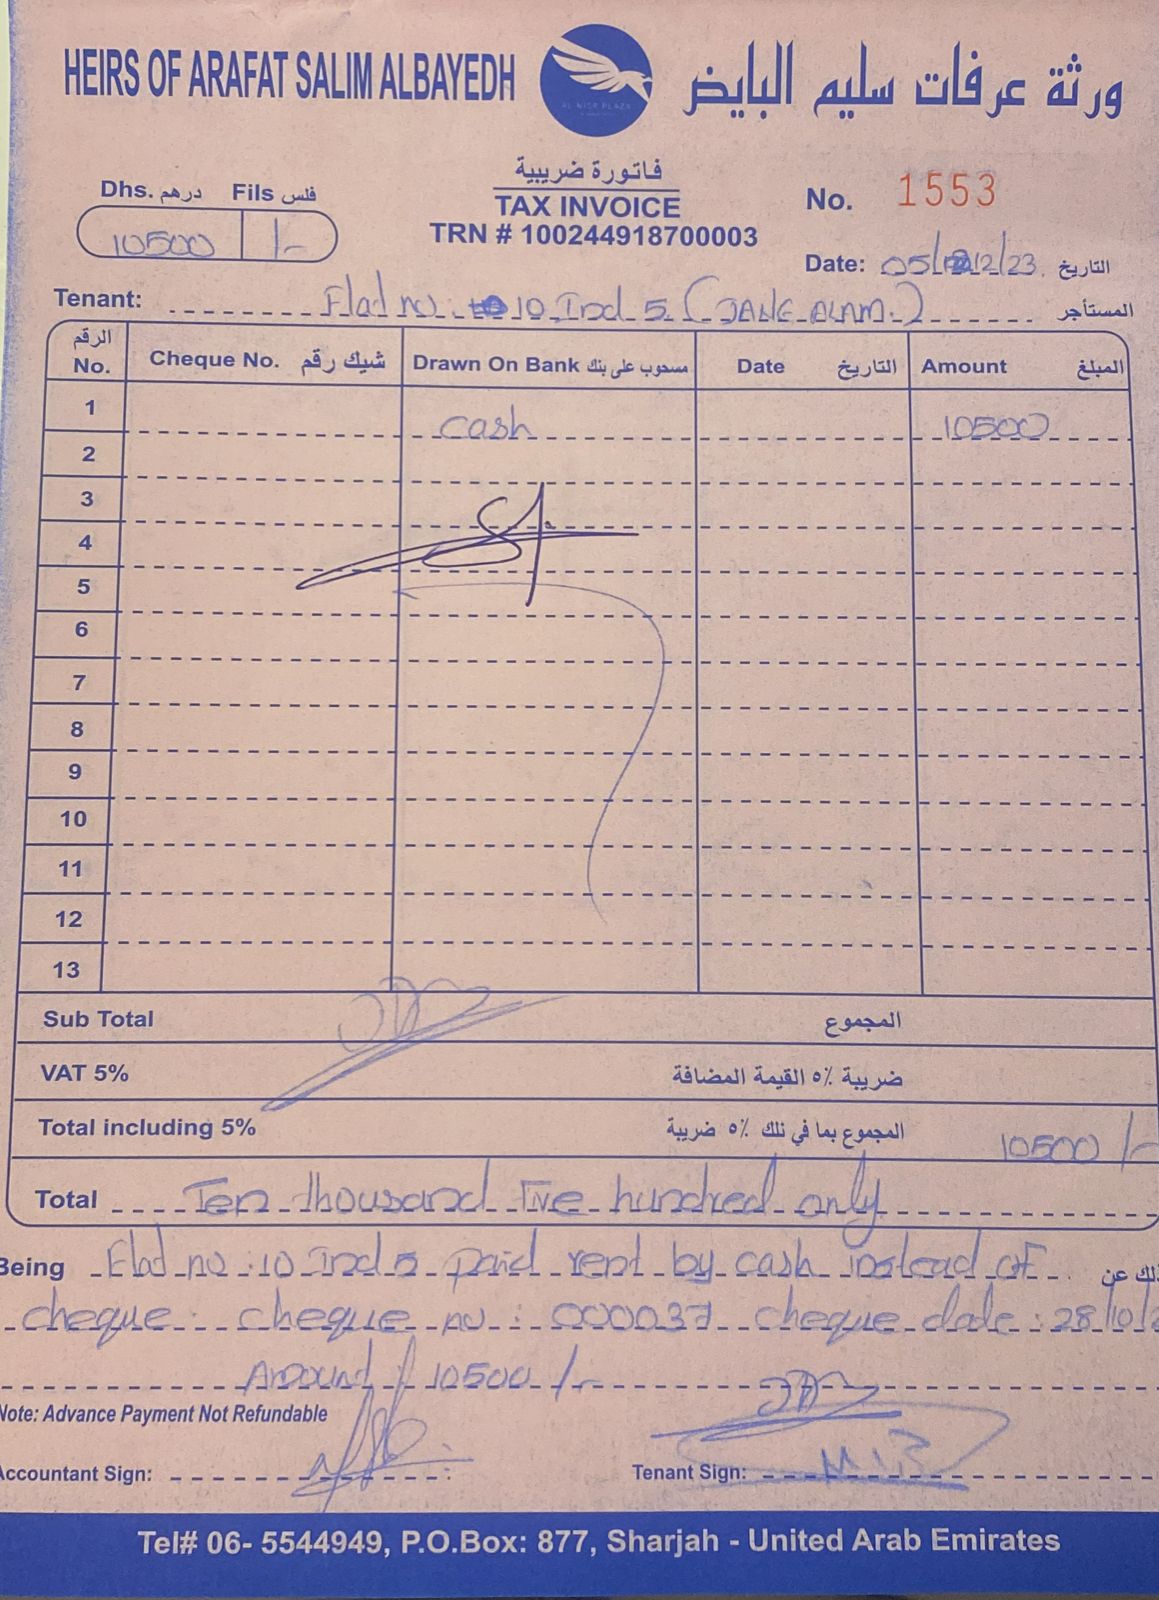 HEIRS OF ARAFAT SALIM ALBAYEDH
AL NISR PLAZA
ورثة عرفات سليم البايض
فاتورة ضريبية
TAX INVOICE
TRN # 100244918700003
Dhs. درهم Fils فلس
10500 /-
No. 1553
Date: 05/12/23 التاريخ
Tenant: Flat no 10 Ind 5 (JANE ALAM.) المستأجر
الرقم
No. Cheque No. شيك رقم Drawn On Bank مسحوب على بنك Date التاريخ Amount المبلغ
1 cash 10500
2
3
4
5
6
7
8
9
10
11
12
13
Sub Total المجموع
VAT 5% ضريبة ٥٪ القيمة المضافة
Total including 5% المجموع بما في تلك ٥٪ ضريبة 10500 /-
Total Ten thousand Five hundred only
Being Flat no :10 Ind 5 paid rent by cash instead of
cheque : cheque no : 000037 cheque date : 28/10/2
Amount / 10500 /-
Note: Advance Payment Not Refundable
Accountant Sign: Tenant Sign:
Tel# 06- 5544949, P.O.Box: 877, Sharjah - United Arab Emirates